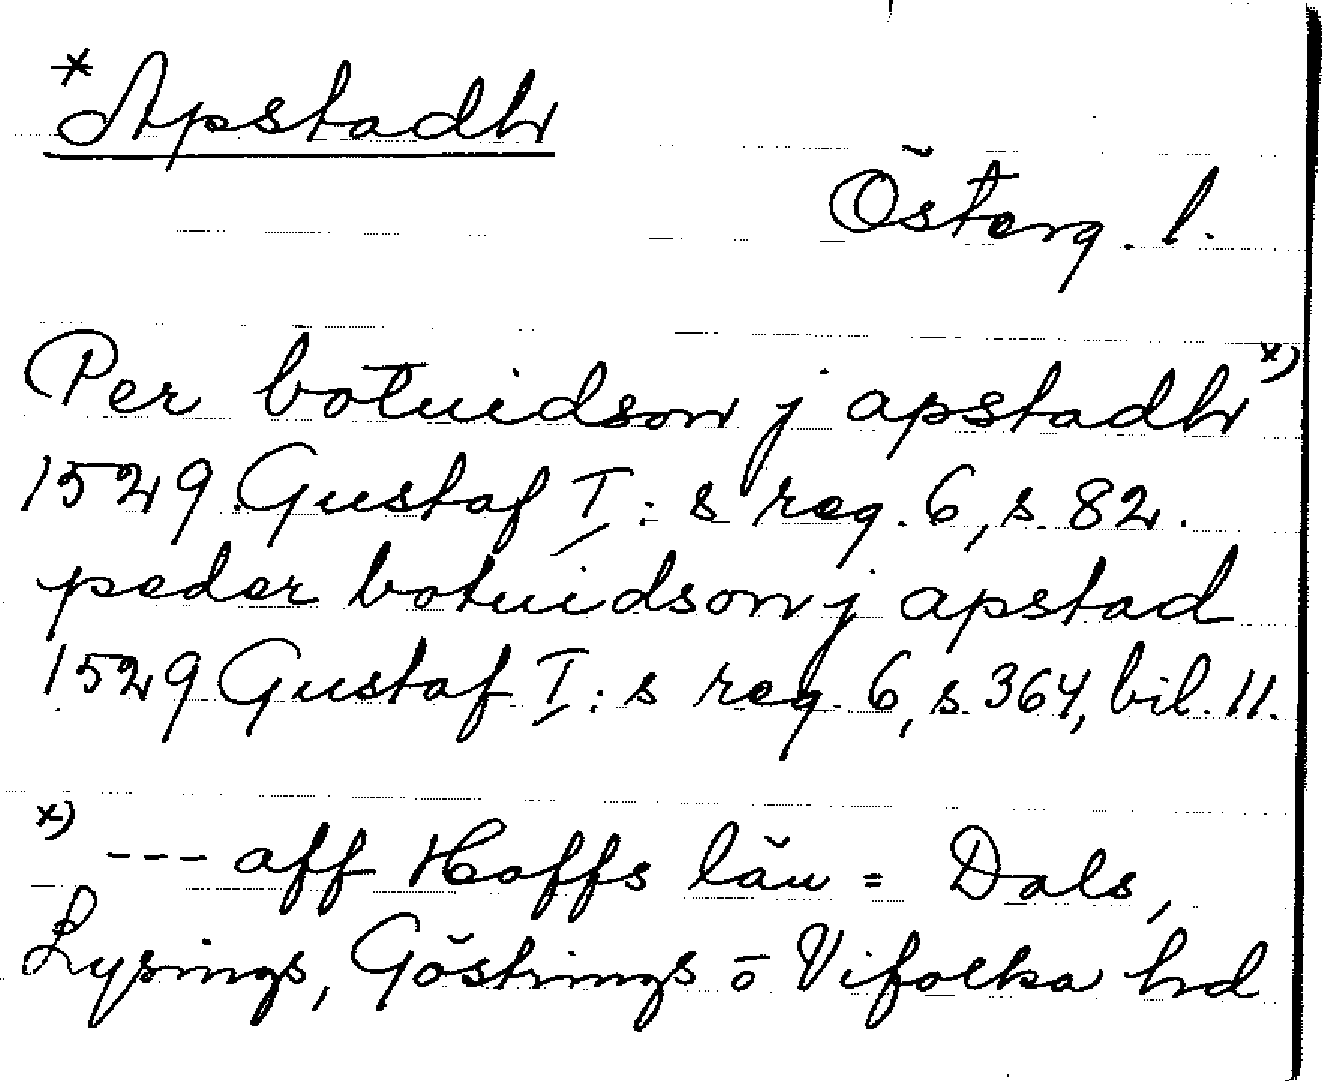 *Apstadh
Österg. l.
Per botuidson j apstadh x)
1529 Gustaf I:s reg. 6, s. 82.
peder botuidson j apstad
1529 Gustaf I:s reg. 6, s. 364, bil. 11.
x) --- aff Hoffs län = Dals,
Lysings, Göstrings o Vifolka hd